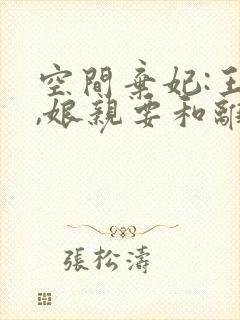 空間棄妃:王
,娘親要和離
張松濤